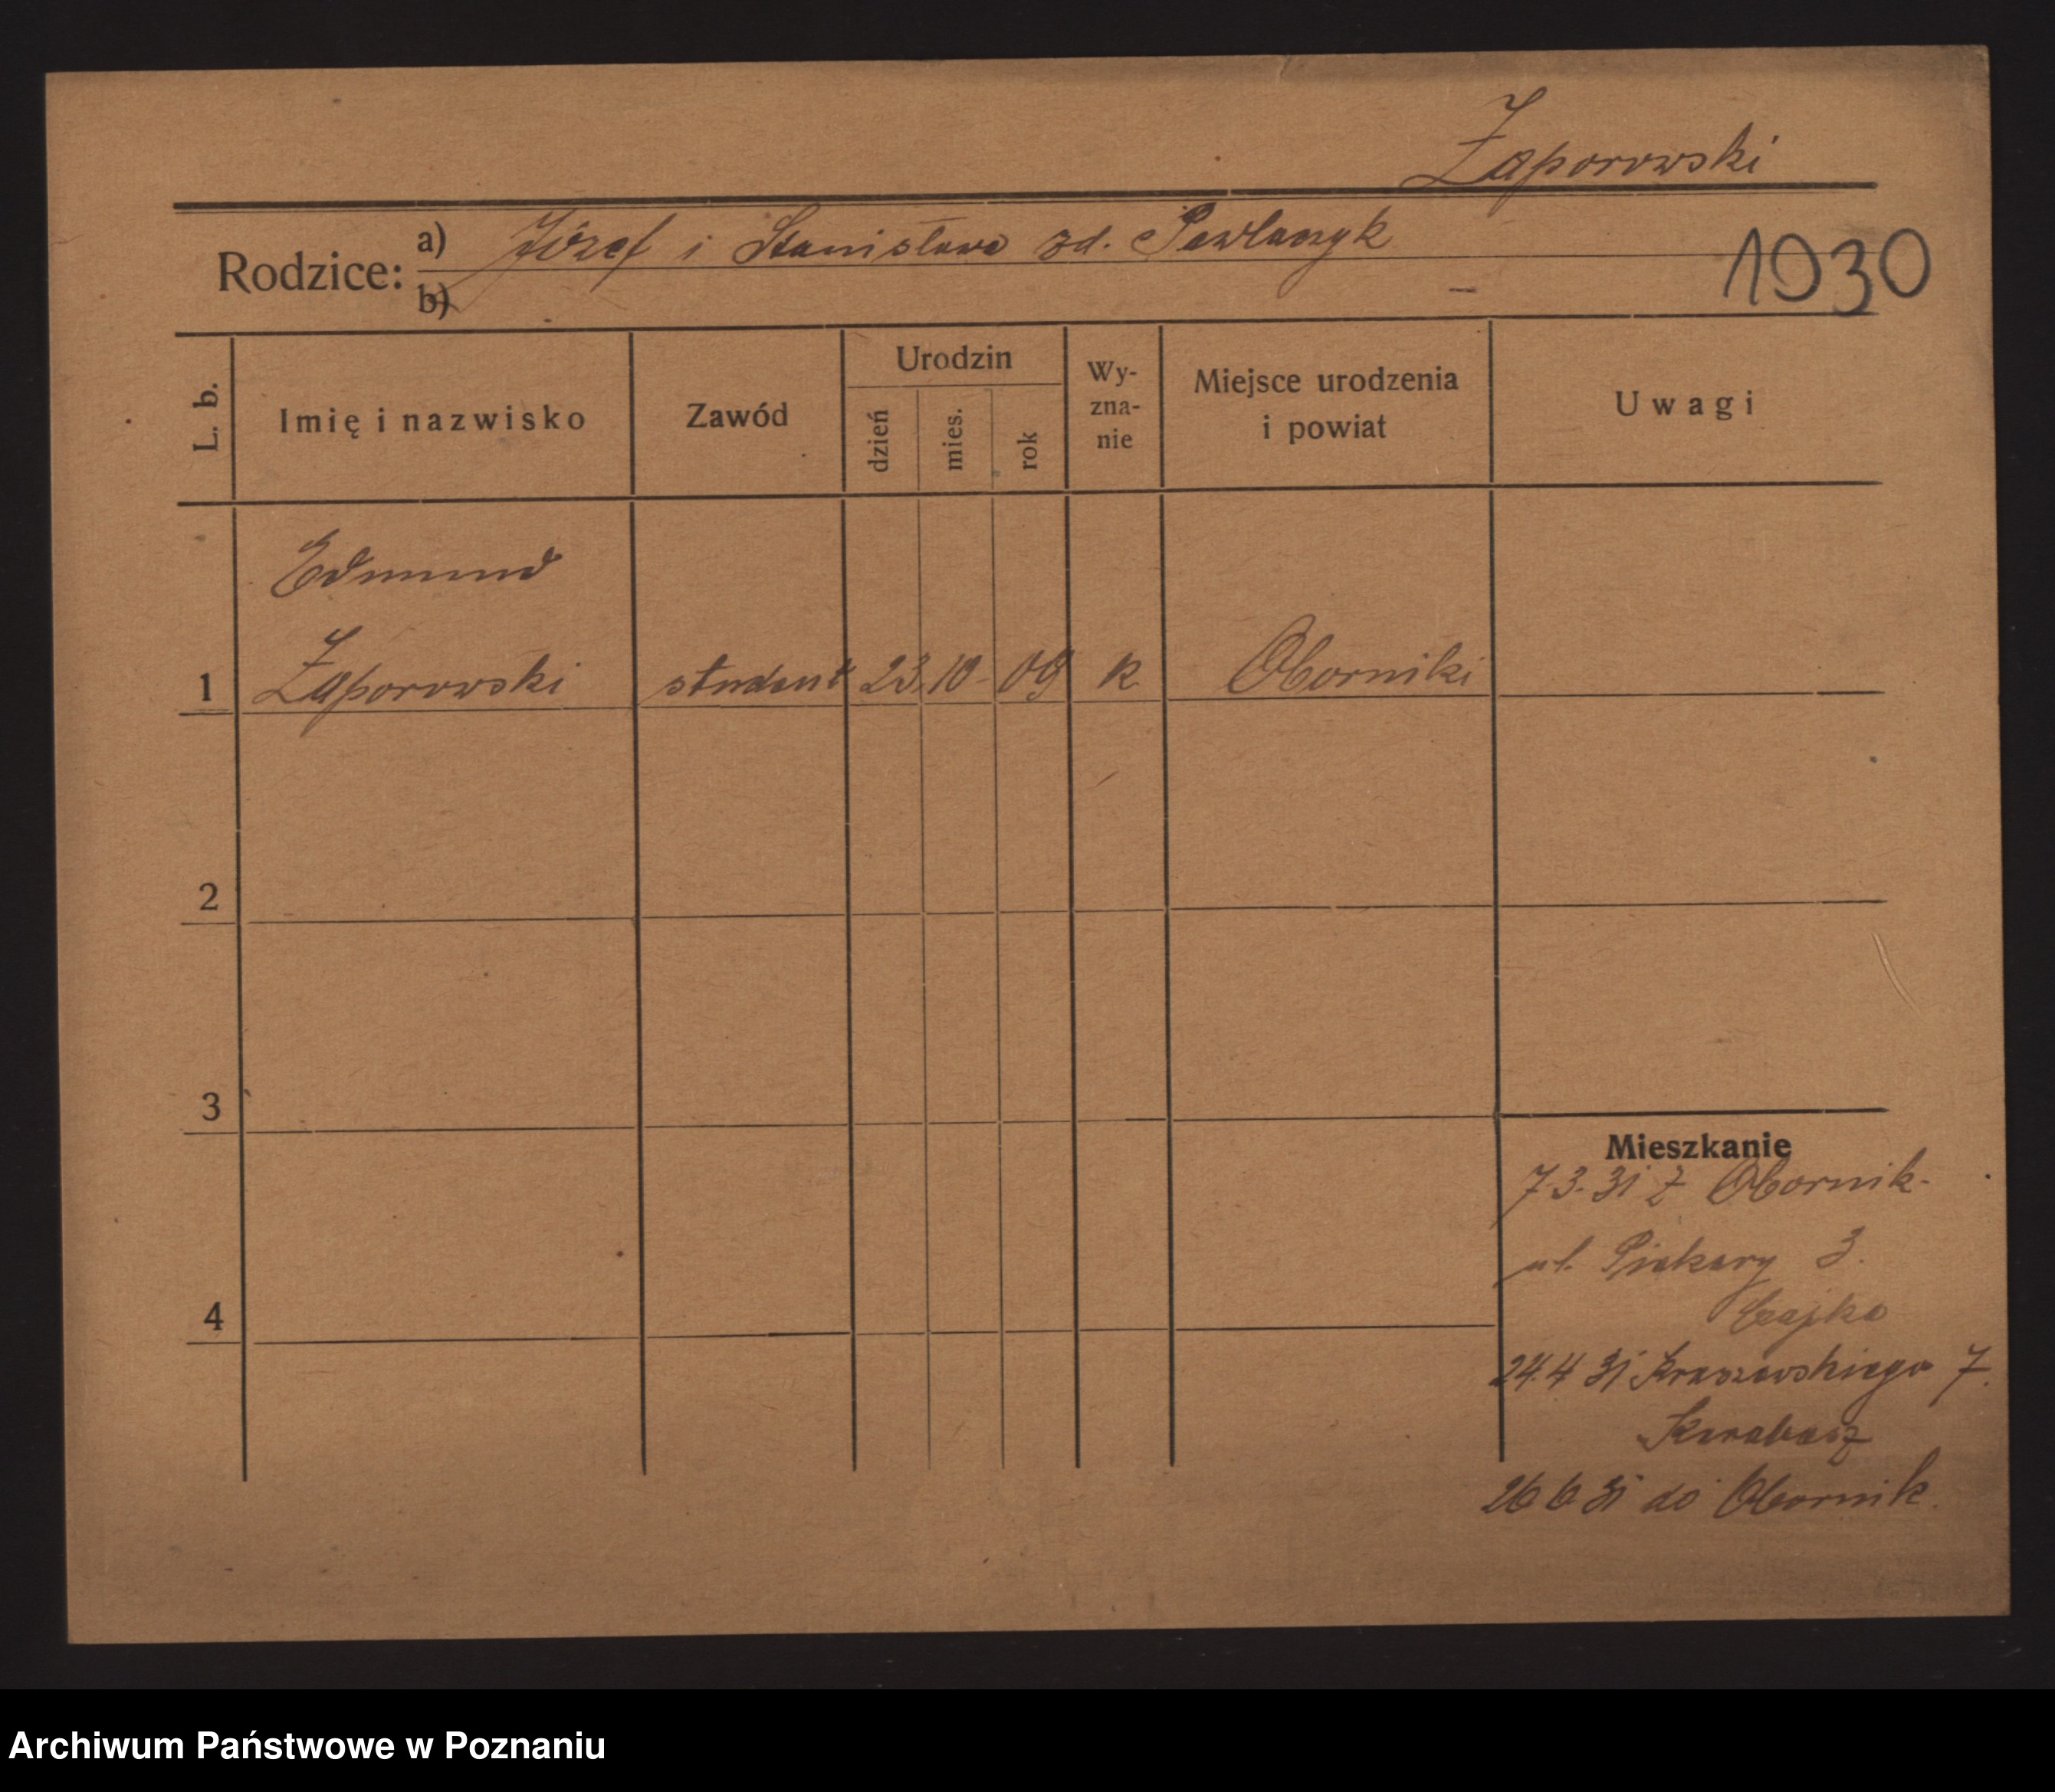 Zaporowski
Rodzice: a) Józef i Stanisława zd. Pawlaczyk
b) —
1930
L. b.
Imię i nazwisko
Zawód
Urodzin
dzień
mies.
rok
Wy-
zna-
nie
Miejsce urodzenia
i powiat
Uwagi
Edmund
1 Zaporowski student 23. 10 09 k Oborniki
2
3
4
Mieszkanie
7.3.31 z Obornik.
ul. Piekary 3.
24.4 31 Kraszewskiego 7.
26 6 31 do Obornik.
Archiwum Państwowe w Poznaniu